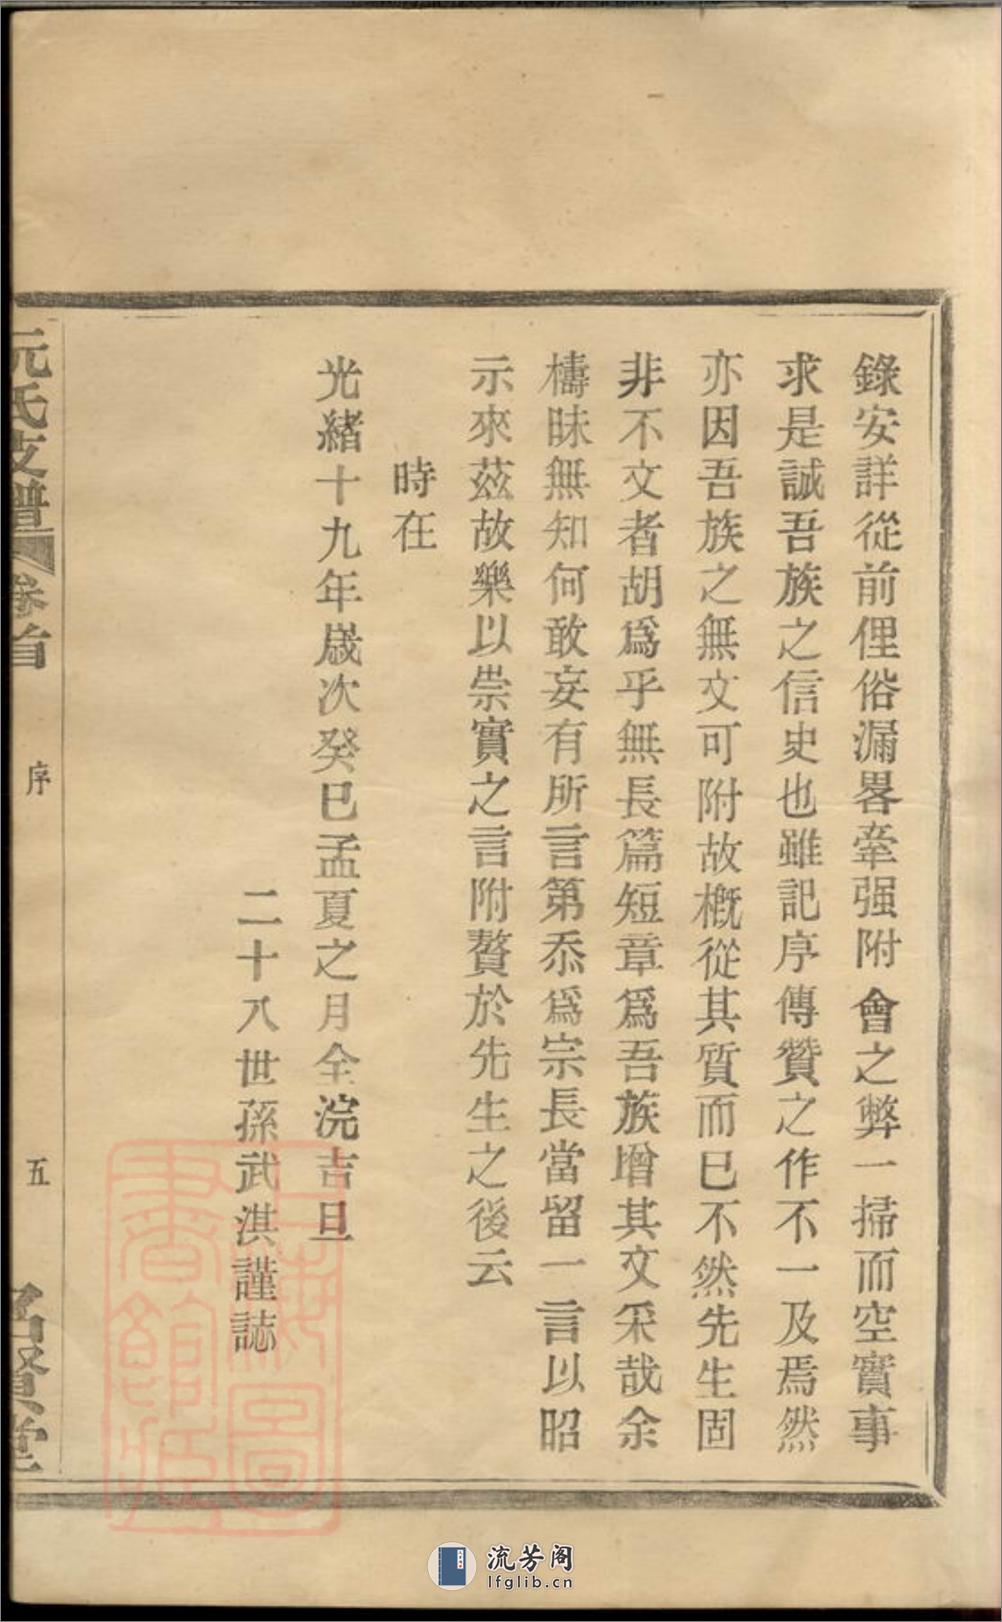 錄安詳從前俚俗漏畧牽强附會之弊一掃而空實事
求是誠吾族之信史也雖記序傳贊之作不一及焉然
亦因吾族之無文可附故概從其質而已不然先生固
非不文者胡爲乎無長篇短章爲吾族增其文采哉余
檮昧無知何敢妄有所言第忝爲宗長當留一言以昭
示來茲故樂以崇實之言附贅於先生之後云
時在
光緒十九年歲次癸巳孟夏之月全浣吉旦
二十八世孫武淇謹誌
阮氏支譜 卷首 序 五 名賢堂
上海圖書館藏
流芳阁
lfglib.cn